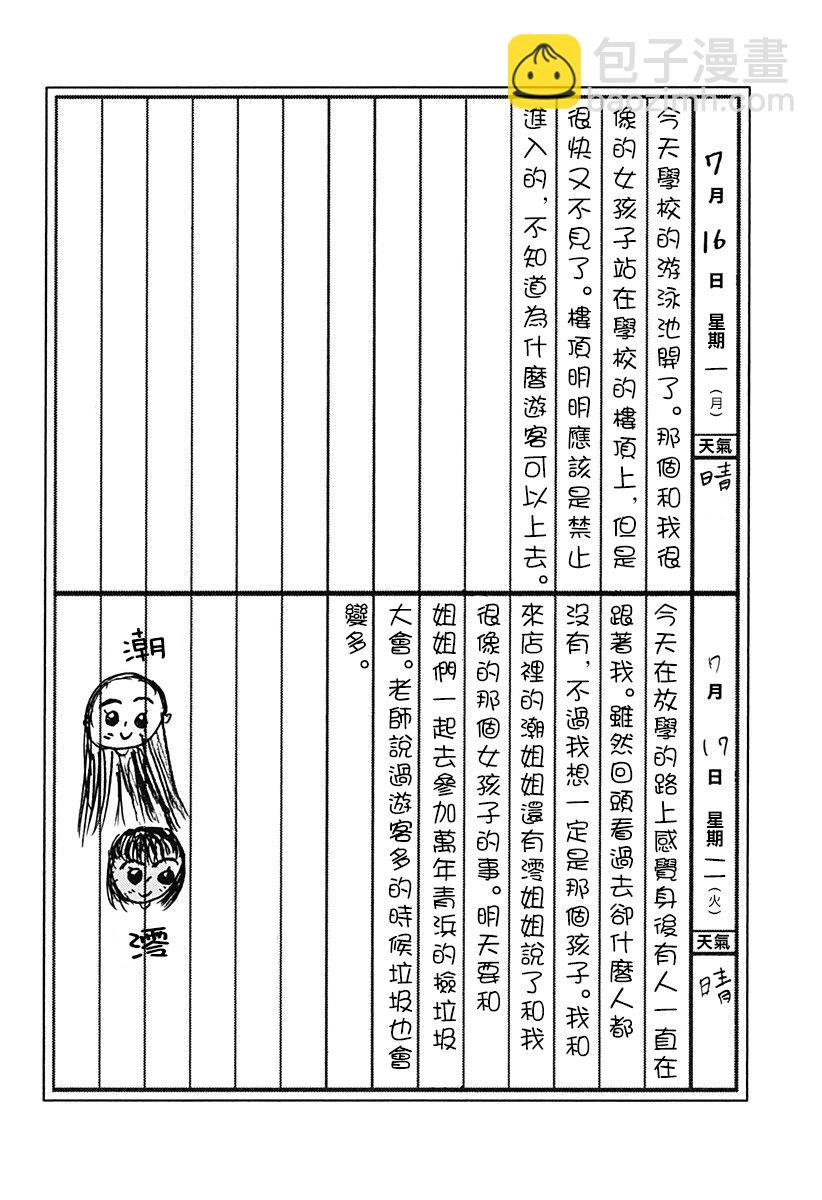 包子漫畫
baozimh.com
7月16日 星期一(月) 天氣 晴
今天學校的游泳池開了。那個和我很
像的女孩子站在學校的樓頂上,但是
很快又不見了。樓頂明明應該是禁止
進入的,不知道為什麼遊客可以上去。
7月17日 星期二(火) 天氣 晴
今天在放學的路上感覺身後有人一直在
跟著我。雖然回頭看過去卻什麼人都
沒有,不過我想一定是那個孩子。我和
來店裡的潮姐姐還有澪姐姐說了和我
很像的那個女孩子的事。明天要和
姐姐們一起去參加萬年青浜的撿垃圾
大會。老師說過遊客多的時候垃圾也會
變多。
潮
澪